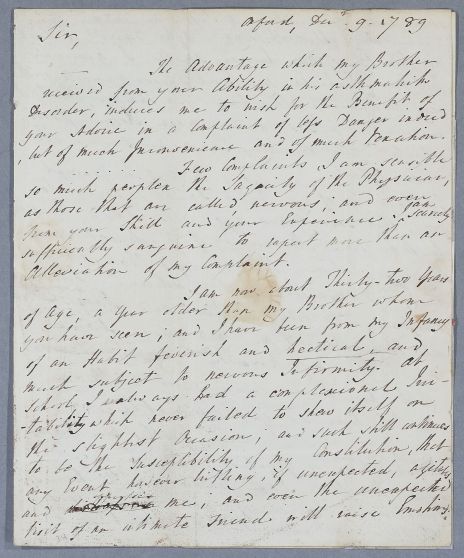 Oxford, Decr. 9. 1789
Sir,
The Advantage which my Brother
received from your Ability in his asthmatick
Disorder, induces me to wish for the Benefit of
your Advice in a Complaint of less Danger indeed
, but of much Inconvenience and of much Vexation.
Few Complaints I am sensible
so much perplex the Sagacity of the Physician,
as those that are called nervous; and even
from your Skill and your Experience I am scarcely
sufficiently sanguine to expect more than an
Alleviation of my Complaint.
I am now about Thirty-two Years
of Age, a Year older than my Brother whom
you have seen; and I have been from my Infancy
of an Habit feverish and hectical, and
much subject to nervous Infirmity. At
School I always had a complexional Irri-
-tability which never failed to shew itself on
the slightest Occasion; and such still continues
to be the Susceptibility of my Constitution, that
any Event however trifling, if unexpected,
and me; and even the unexpected
Visit of an intimate Friend will raise